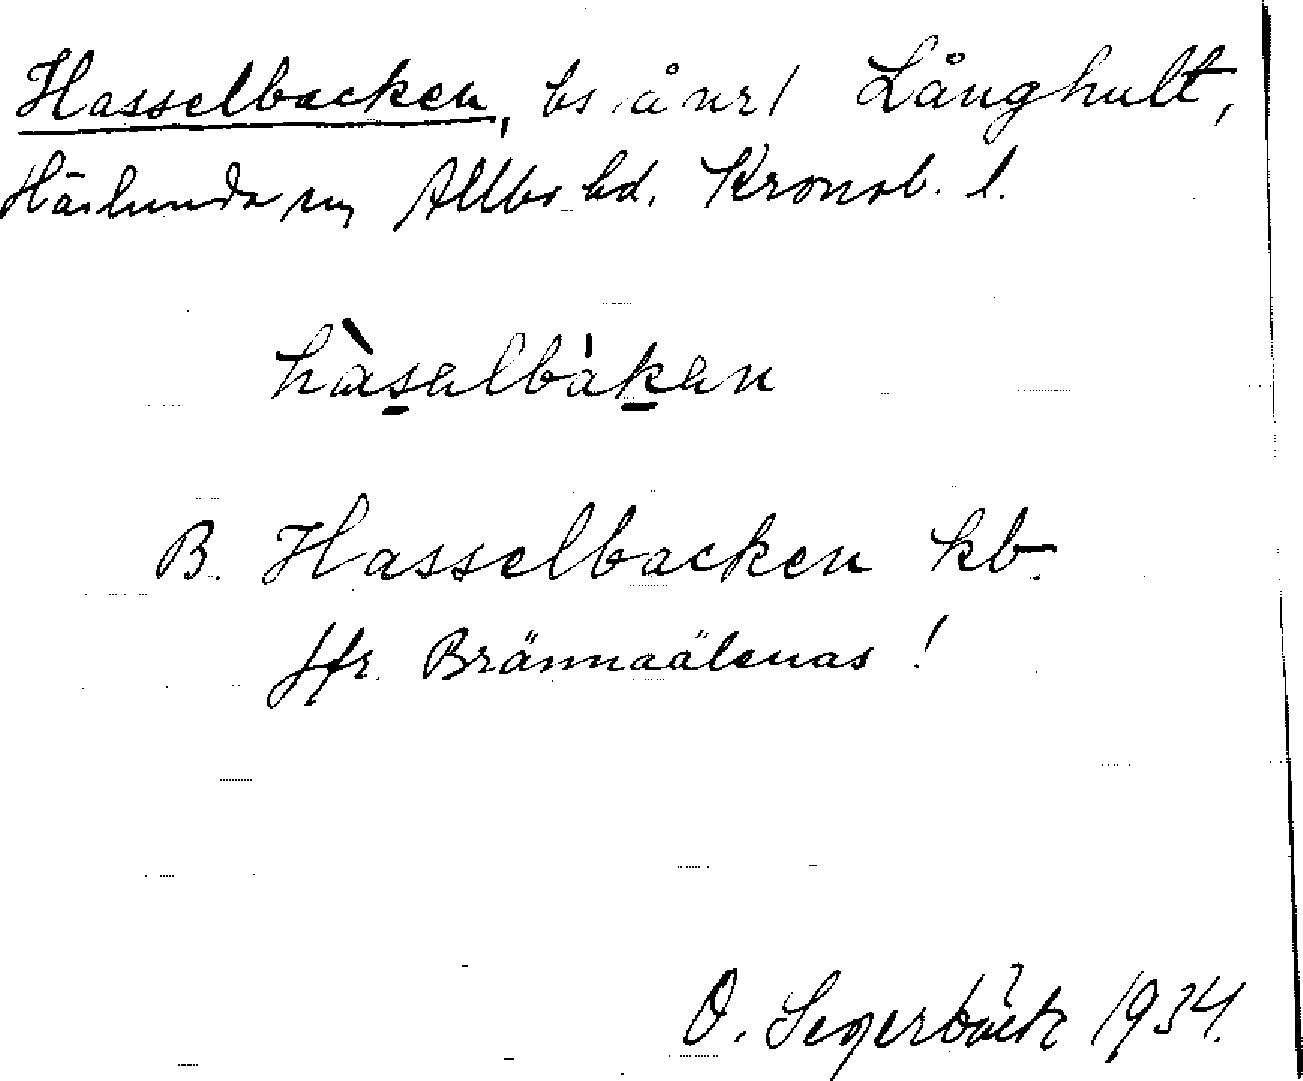 Hasselbacken, bs å nr 1 Långhult,
Härlunda sn, Allbo hd. Kronob. l.
hàsəlbákən
B. Hasselbacken kb.
Jfr. Brännaälenas !
O. Segerbäck 1934.